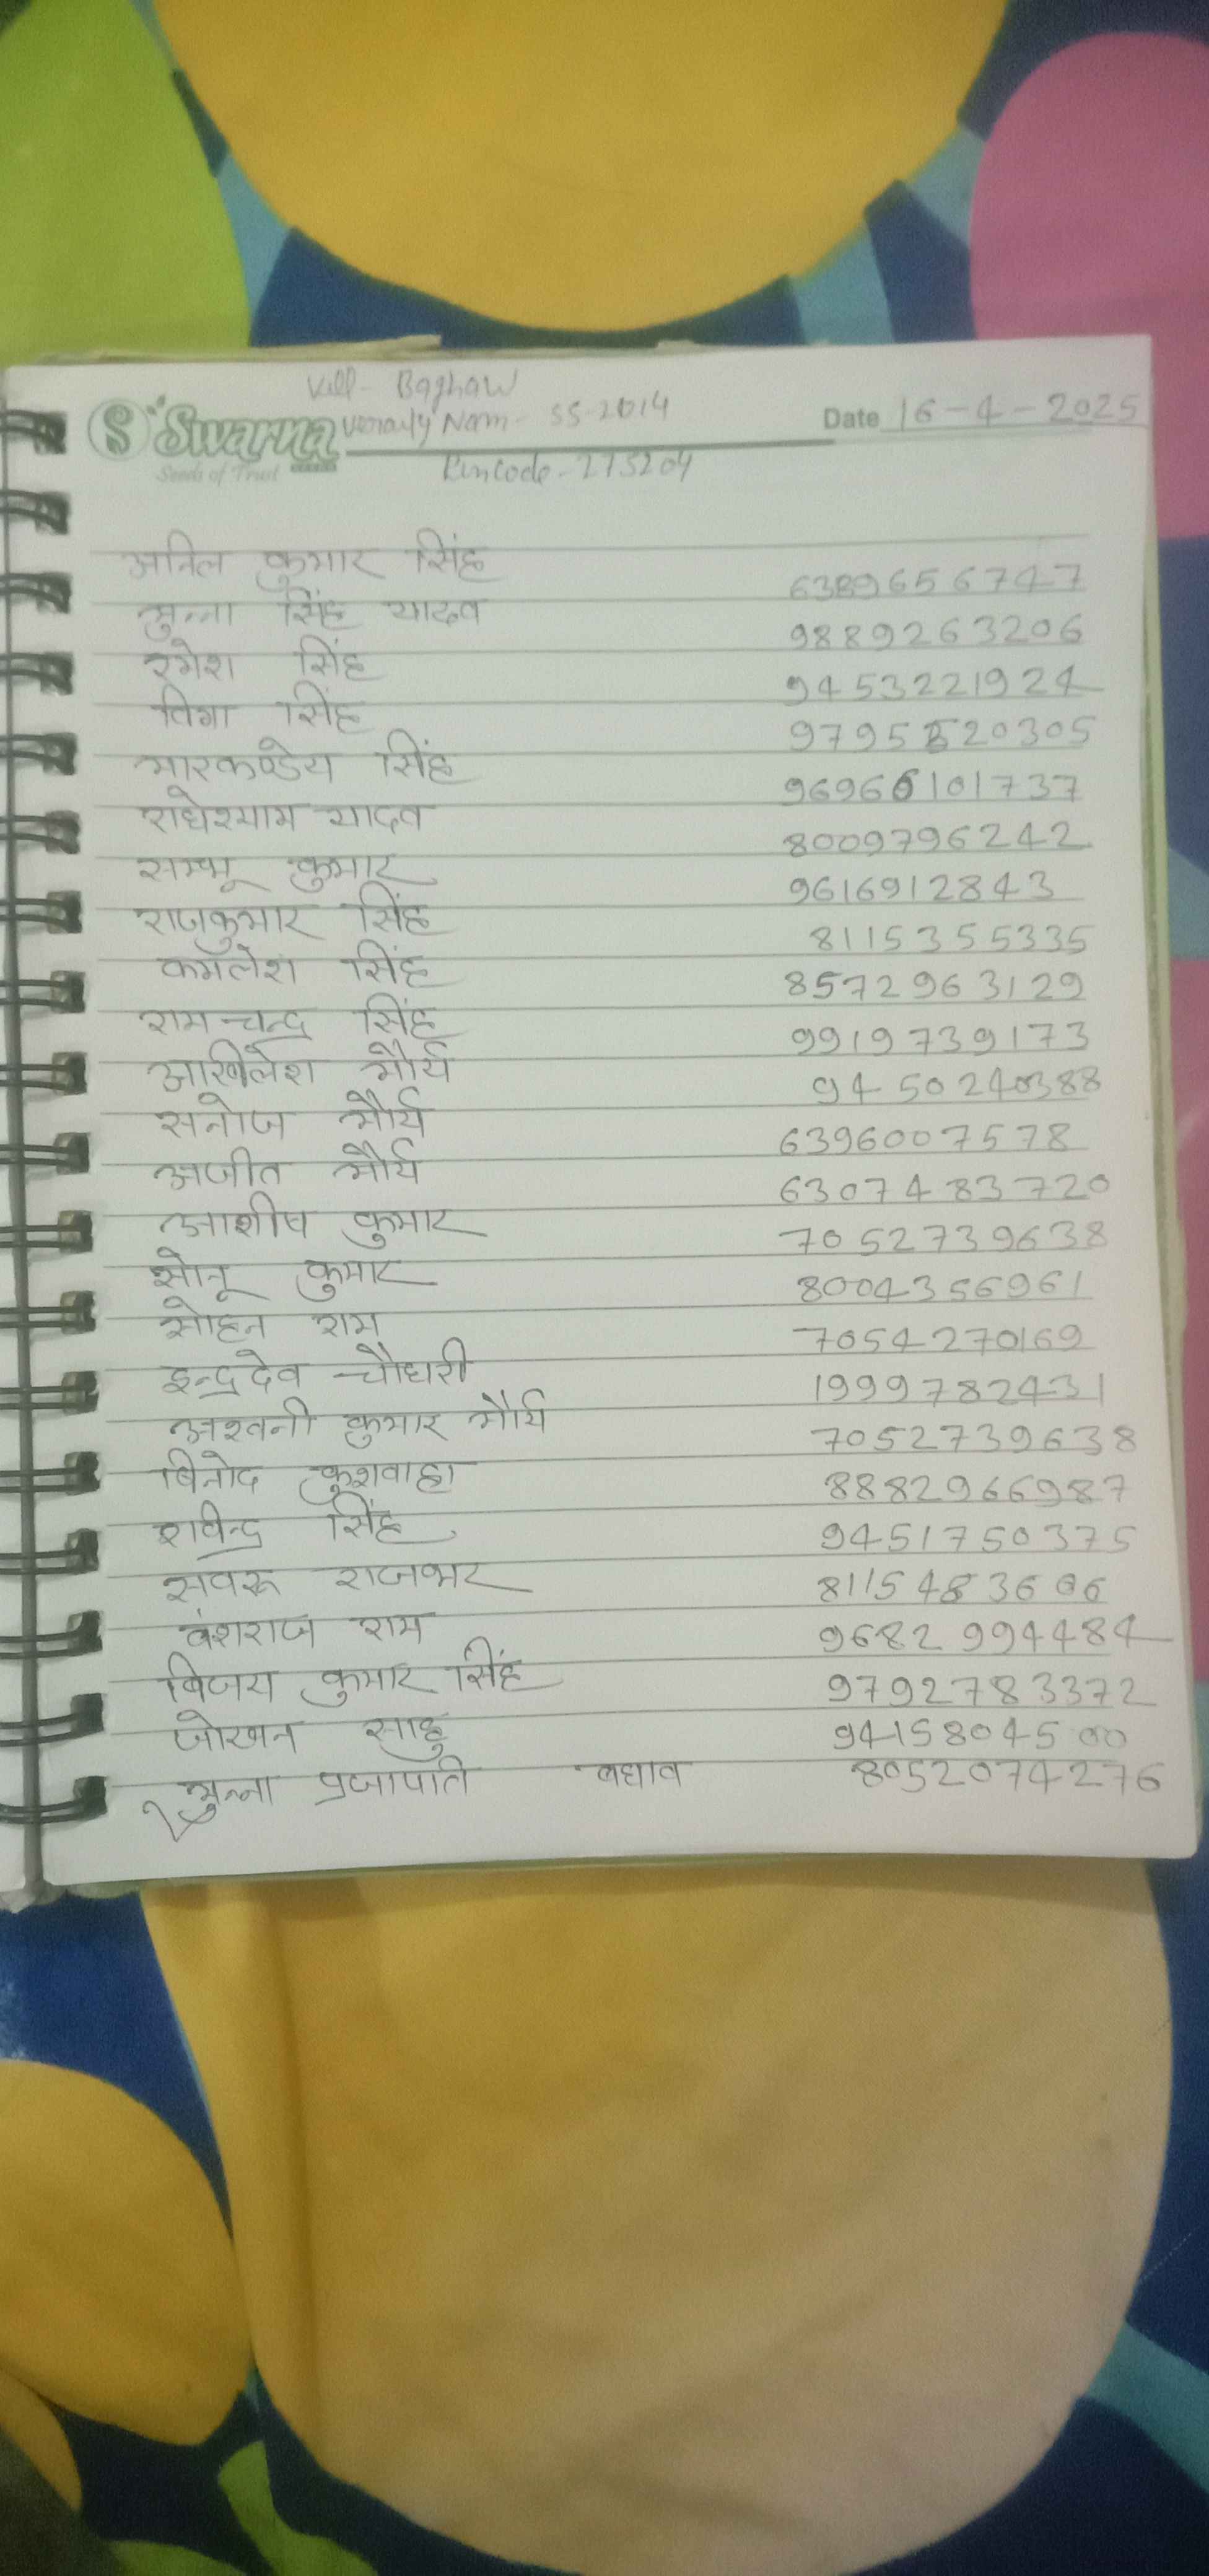 Vill - Baghaw
S Swarna Verraity Nam - SS-2014 Date 16-4-2025
Seeds of Trust Pincode - 275204
अनिल कुमार सिंह 6389656747
मुन्ना सिंह यादव 9889263206
रमेश सिंह 9453221924
विगा सिंह 9795520305
मारकण्डेय सिंह 96966101737
राधेश्याम यादव 8009796242
सम्भू कुमार 9616912843
राजकुमार सिंह 8115355335
कमलेश सिंह 8572963129
रामचन्द्र सिंह 9919739173
अखिलेश मौर्य 9450240388
सनोज मौर्य 6396007578
अजीत मौर्य 6307483720
आशीष कुमार 7052739638
सोनू कुमार 8004356961
सोहन राम 7054270169
इन्द्रदेव चौधरी 1999782431
अश्वनी कुमार मौर्य 7052739638
विनोद कुशवाहा 8882966987
रावेन्द्र सिंह 9451750375
सवरू राजभर 8115483606
वंशराज राम 9682994484
विजय कुमार सिंह 9792783372
जोखन साहु 9415804500
मुन्ना प्रजापति बघाव 8052074276